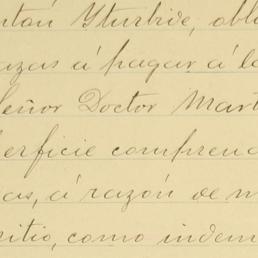 ntán Yturbide, obl
azas á pagar á la
Señor Doctor Mart
erficie comprend
as, á razón de m
itio, como indem